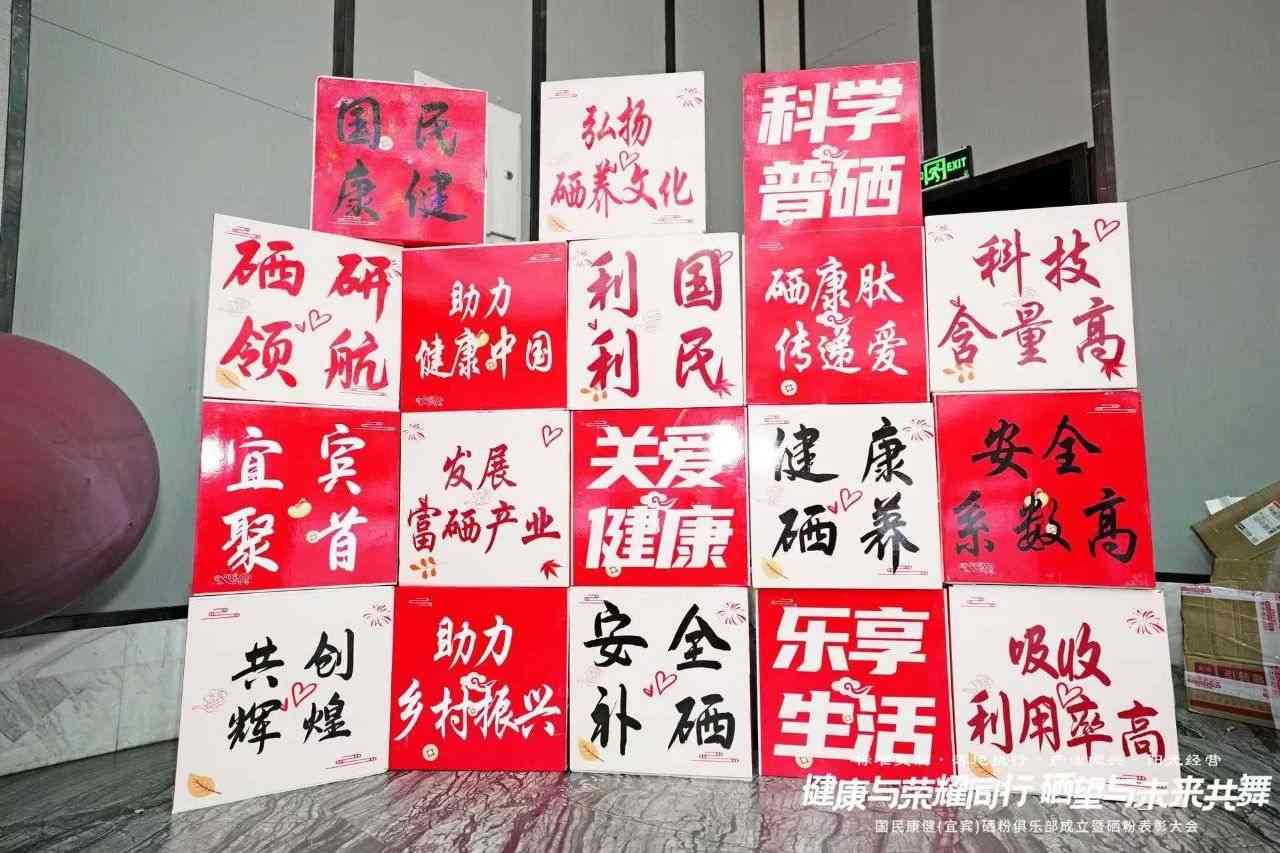 国民
康健
弘扬
硒养文化
科学
普硒
EXIT
硒研
领航
助力
健康中国
利国
利民
硒康肽
传递爱
科技
含量高
宜宾
聚首
发展
富硒产业
关爱
健康
健康
硒养
安全
系数高
共创
辉煌
助力
乡村振兴
安全
补硒
乐享
生活
吸收
利用率高
健康与荣耀同行 硒望与未来共舞
国民康健(宜宾)硒粉俱乐部成立暨硒粉表彰大会